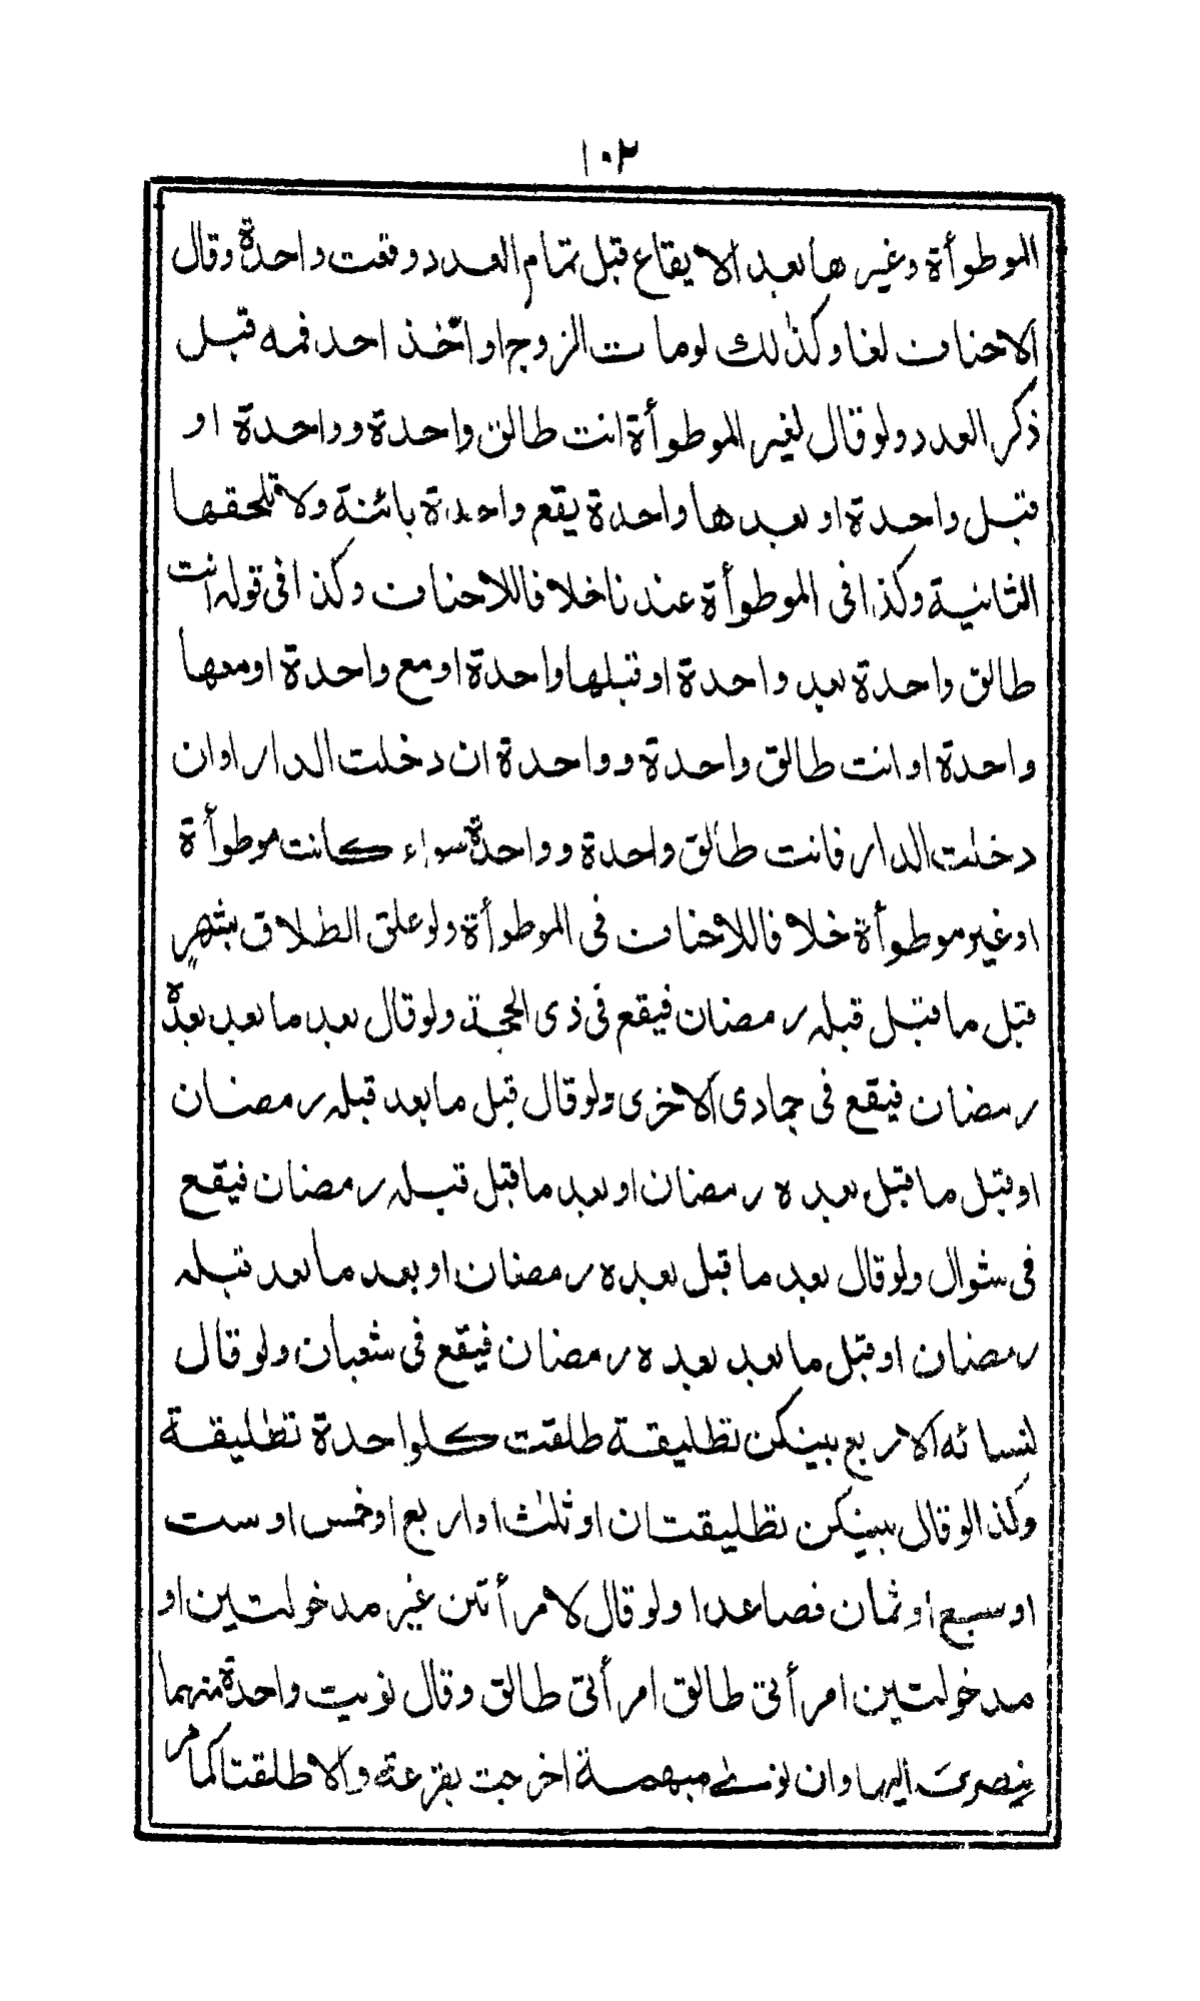 ١٠٢
الموطوأة وغيرها بعد الايقاع قبل تمام العدد وقعت واحدة وقال
الاحناف لغا وكذلك لو مات الزوج او اتخذ احد فمه قبل
ذكر العدد ولو قال لغير الموطوأة انت طالق واحدة وواحدة او
قبل واحدة او بعدها واحدة يقع واحدة بائنة ولا تلحقها
الثانية وكذا فى الموطوأة عندنا خلافا للاحناف وكذا فى قوله انت
طالق واحدة بعد واحدة او قبلها واحدة او مع واحدة او معها
واحدة او انت طالق واحدة وواحدة ان دخلت الدار او ان
دخلت الدار فانت طالق واحدة وواحدة سواء كانت موطوأة
او غير موطوأة خلافا للاحناف فى الموطوأة ولو علق الطلاق بشهرٍ
قبل ما قبل قبله رمضان فيقع فى ذى الحجة ولو قال بعد ما بعد بعده
رمضان فيقع فى جمادى الاخرى ولو قال قبل ما بعد قبله رمضان
او قبل ما قبل بعده رمضان او بعد ما قبل قبله رمضان فيقع
فى شوال ولو قال بعد ما قبل بعده رمضان او بعد ما بعد قبله
رمضان او قبل ما بعد بعده رمضان فيقع فى شعبان ولو قال
لنسائه الاربع بينكن تطليقة طلقت كل واحدة تطليقة
وكذا لو قال بينكن تطليقتان او ثلث او اربع او خمس او ست
او سبع او ثمان فصاعدا ولو قال لامرأتين غير مدخولتين او
مدخولتين امرأتى طالق امرأتى طالق وقال نويت واحدة منهما
ينصرف اليها وان نوى مبهمة اخرجت بقرعة والا طلقتا كما مر